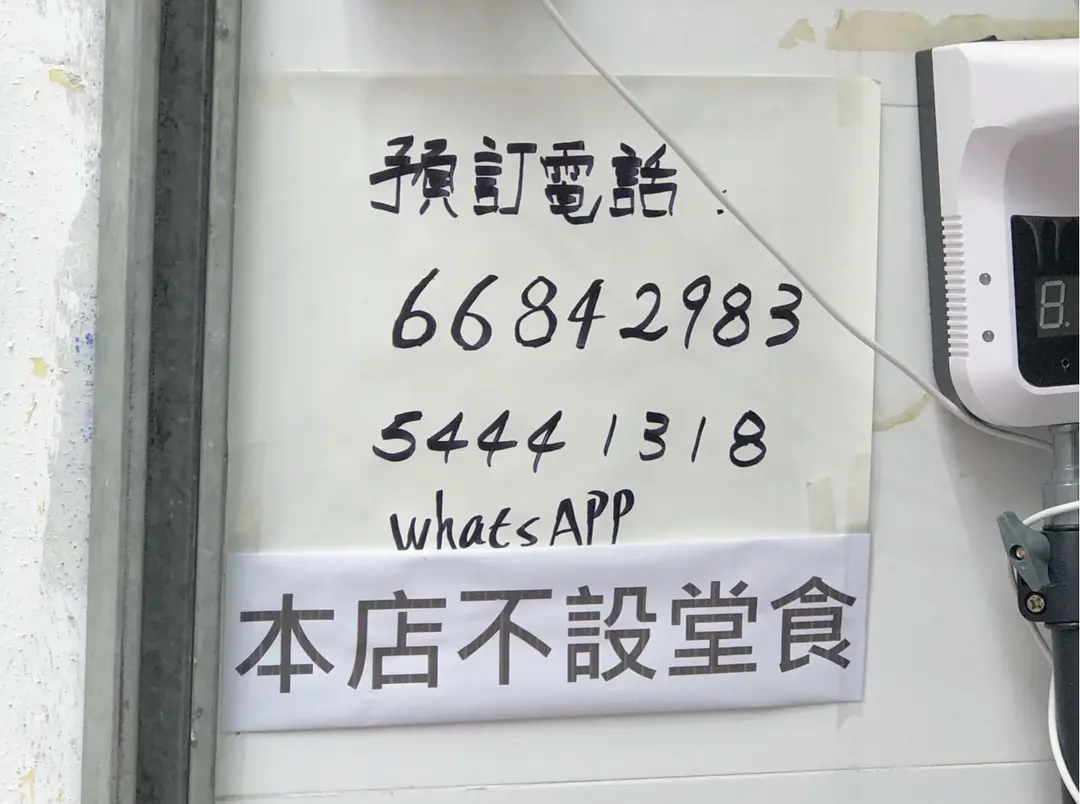 預訂電話：
66842983
54441318
whatsAPP
本店不設堂食
8.